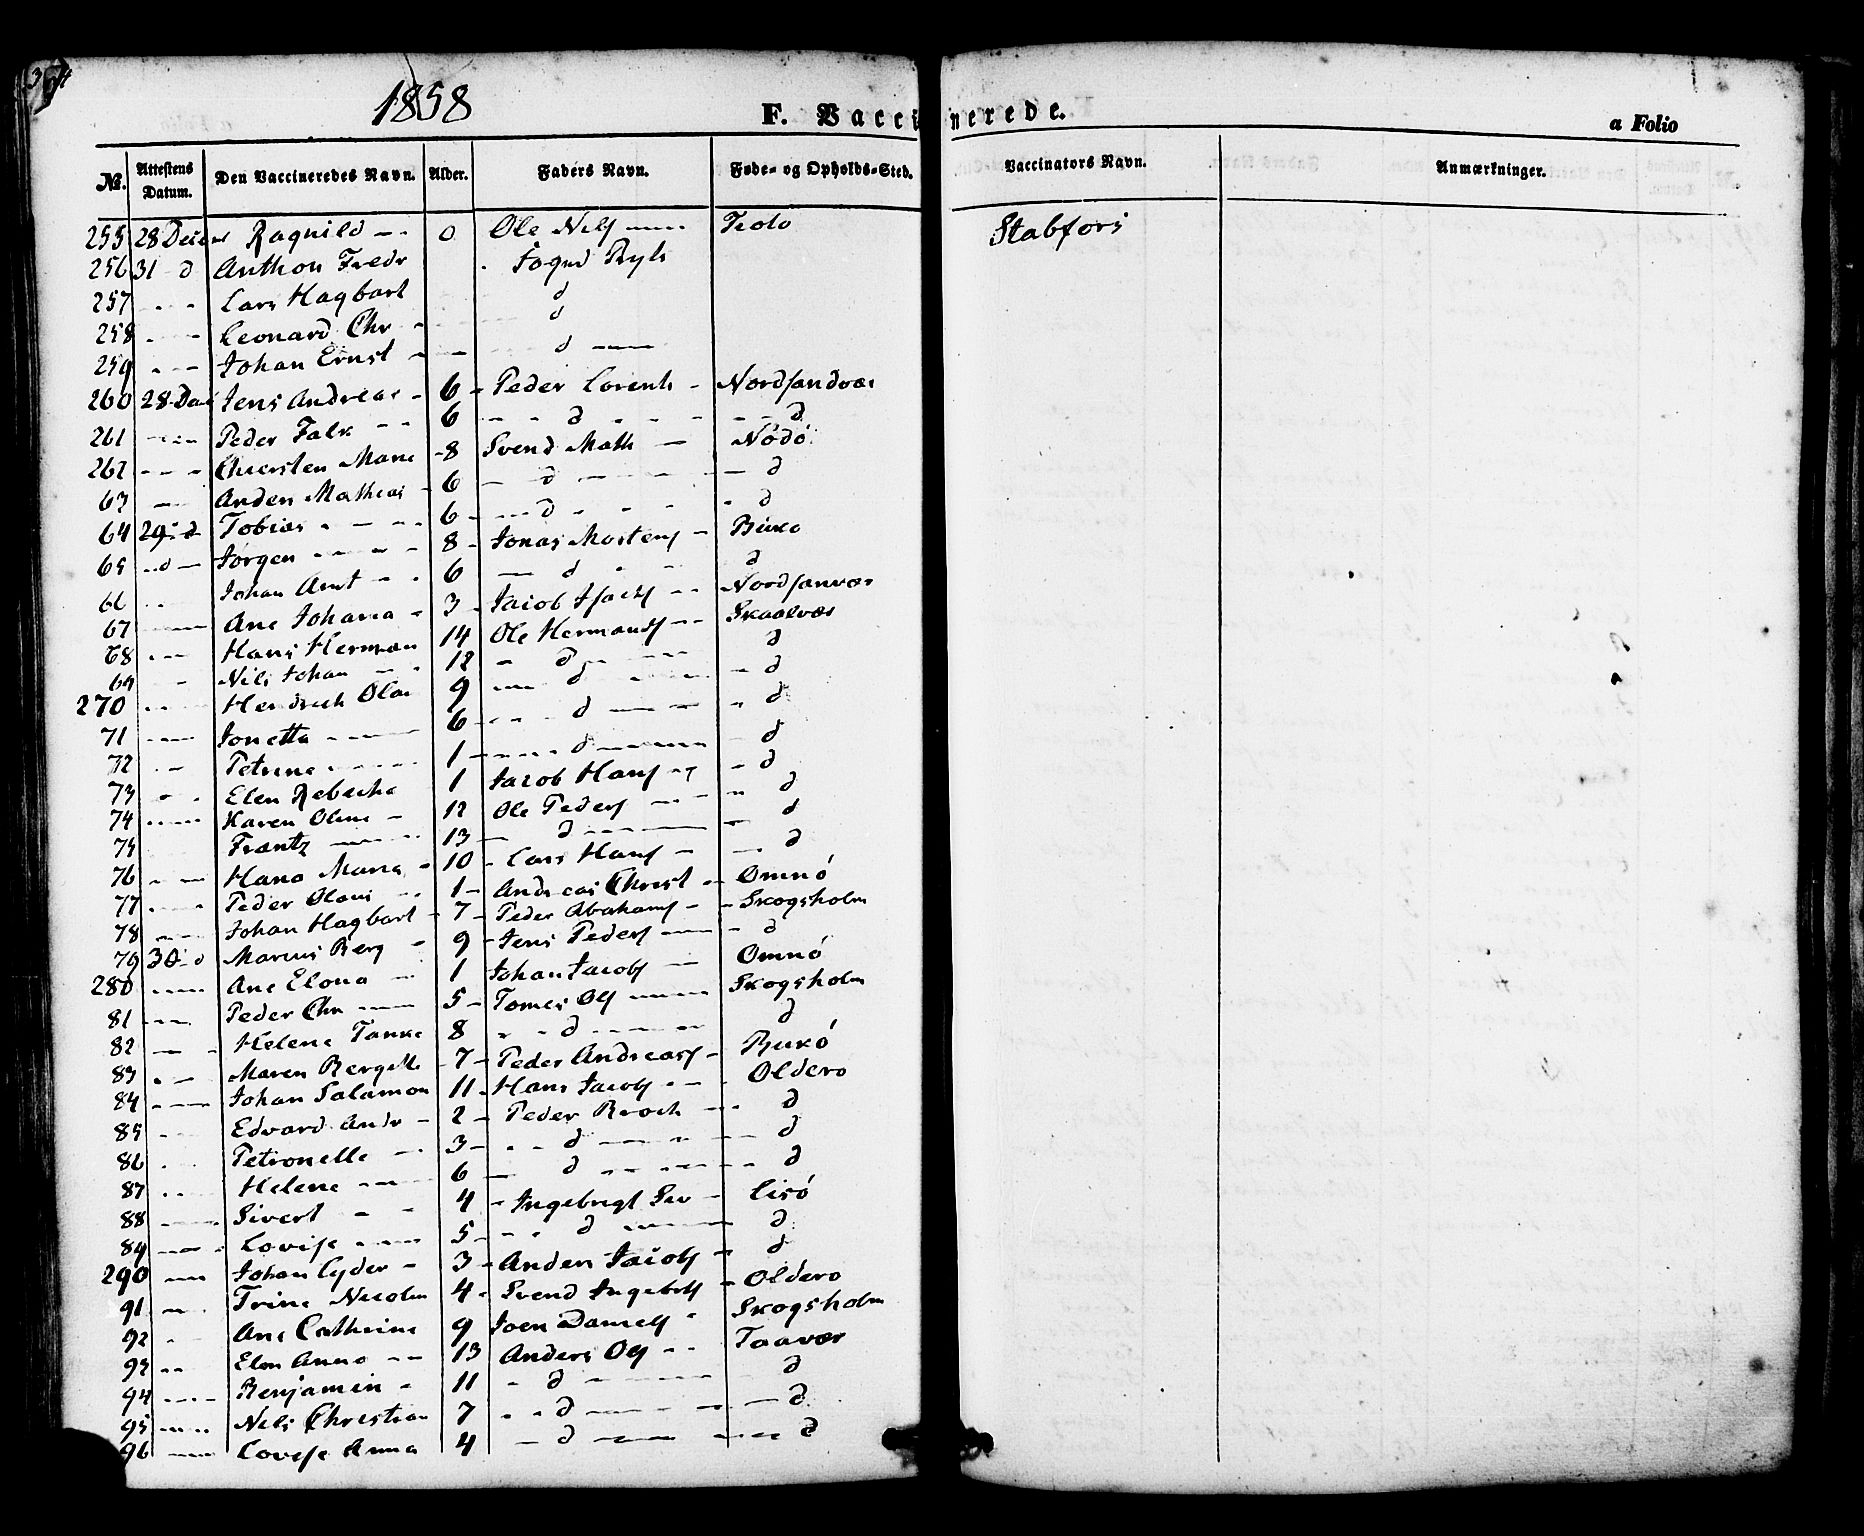 1858
F. Vaccinerede.
a Folio
No. Attestens Datum. Den Vaccineredes Navn. Alder. Faders Navn. Føde- og Opholds-Sted. Vaccinators Navn. Anmærkninger.
255 28 Ragnild - - 0 Ole Nils Stabfors
256 31 d Anthon Fredr
257 - - - Lars Hagbart d
258 - - Leonard Chr - d
259 - - - Johan Ernst - d
260 28 Jens Andreas - 6 - Peder Lorents - Nordsandvær
261 - - - Peder Falk - - 6 - - d - - - - d
262 - - - Mari - 8 Svend Math - Nødø
63 - - Anders Mathias - 6 - d - - - d
64 29 d Tobias - - - 6 - - d - - - - d
65 - d - Jørgen - - - 8 - Jonas Mortens - Buko
66 - - Johan Arnt - - 6 - d - - d
67 - - Ane Johana - 3 - Jacob Isachs - - Nordsanvær
68 - - - Hans Herman 14 Ole Hermands - - Skaalvær
69 - Nils Johan - - 12 - d - - d
270 - - Hendrich Olai 9 - - d - - - d
71 - - - Jonetta - - - 6 - - - d - - - d
72 - - Petrine - - - 1 - - - - d - - - d
73 - - Elen Rebecha 1 Jacob Hans - - - d
74 - - - Karen Oline - 12 Ole Peders - - - d
75 Frantz - - - 13 - d - - - d
76 - - Hana Maria - 10 - Lars Hans - - d
77 - - - Peder Olaus - - 1 - Andreas Christ - Omnø
78 - - - Johan Hagbart - 7 - Peder Abrahams - - Skogsholm
79 30 d Marius Berg - 9 - Jens Peders - - - d
280 - - - Ane Elona - 1 Johan Jacobs - Omnø
81 - - - Peder Chr - - 5 - Tomes Ols - - Skogsholm
82 - - Helene Tanke 8 - - d - - - d
83 - - Maren - 7 - Peder Andreas - Bukø
84 - - - Johan Salamon 11 - Hans Jacobs - - - Oldero
85 - - Edvard Andr - 2 - Peder Broch - - - d
86 - - Petronelle - - 3 - - - d - - - - d
87 - - Helene - - - 6 - d - - - - - d
88 - - - Sivert - - 4 - Ingebrigt Siv - Lisø
89 - - - Lovise - - - 5 - - - d - - - d
290 - - Johan Lyder - 3 - Anders Jacobs - d
91 - - Trine Nicolin 4 - Svend - Oldero
92 - Ane Cathrine 9 Joen Daniels - Skogsholm
93 - - Elen Anna - - 13 Anders Ols - - Taavær
94 - - - Benjamin - 11 - d - - - - d
95 - - - Nils Christian 7 - - d - - - - d
96 - - Lovise Anna 4 - d - - - - d